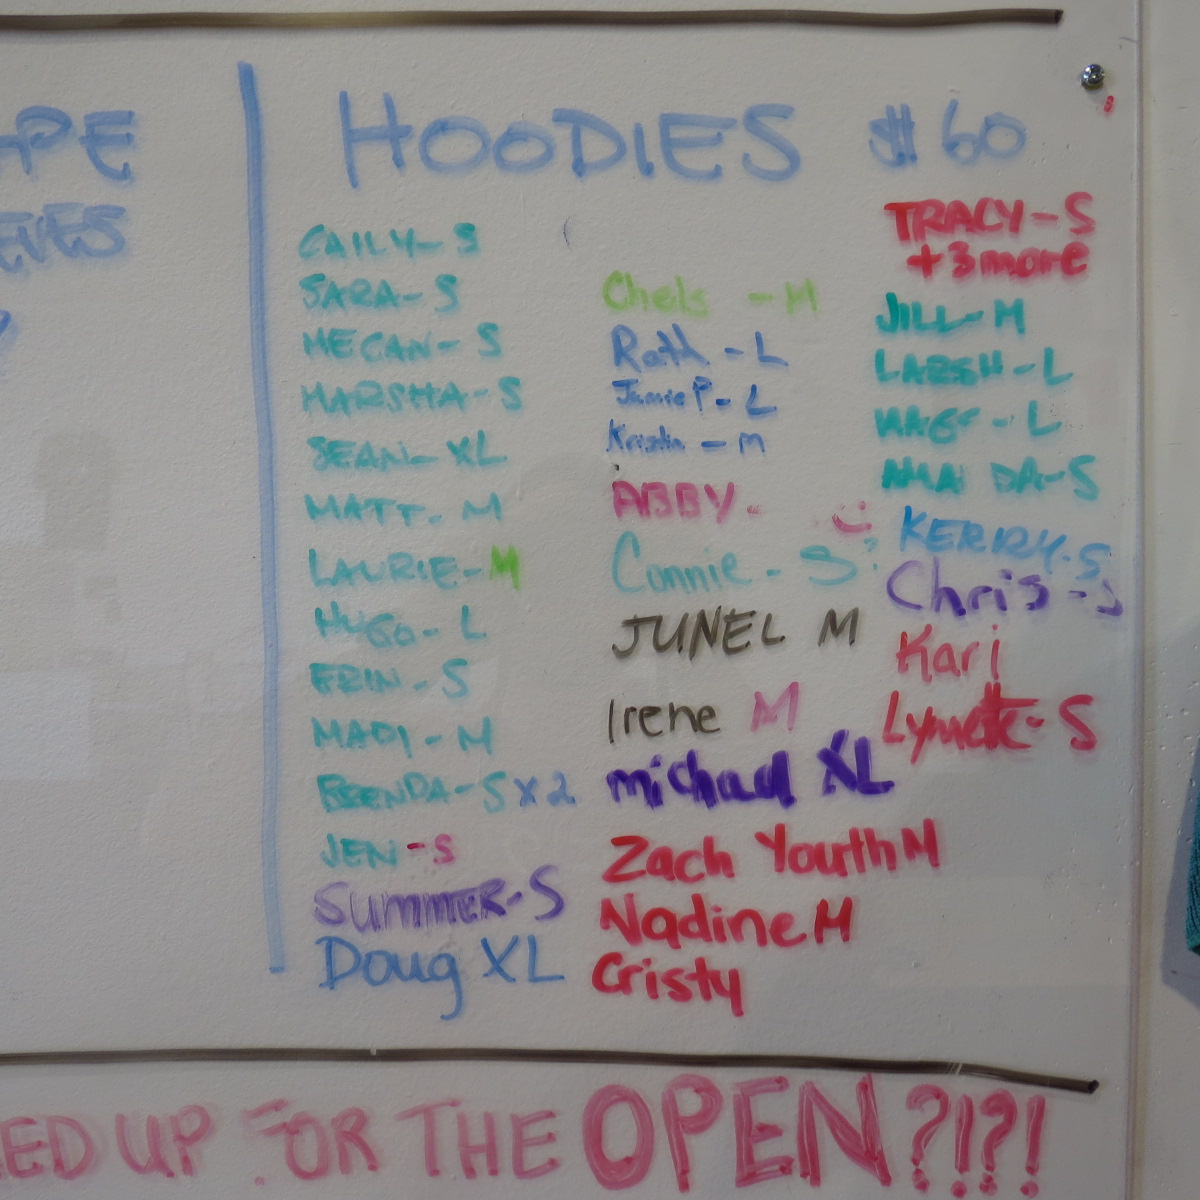 HOODIES $60
CAILY-S
SARA-S
MEGAN-S
MARSHA-S
SEAN-XL
MATT-M
LAURIE-M
HUGO-L
ERIN-S
MADI-M
BRENDA-S X2
JEN-S
SUMMER-S
Doug XL
Chels -M
Rath -L
Jamie P-L
Kristin -M
ABBY-
Connie - S?
JUNEL M
Irene M
michael XL
Zach Youth M
Nadine M
Cristy
TRACY-S
+3more
JILL-M
LARSH-L
-L
AMA DA-S
KERRY-S
Chris-S
Kari
Lynette-S
UP FOR THE OPEN?!?!